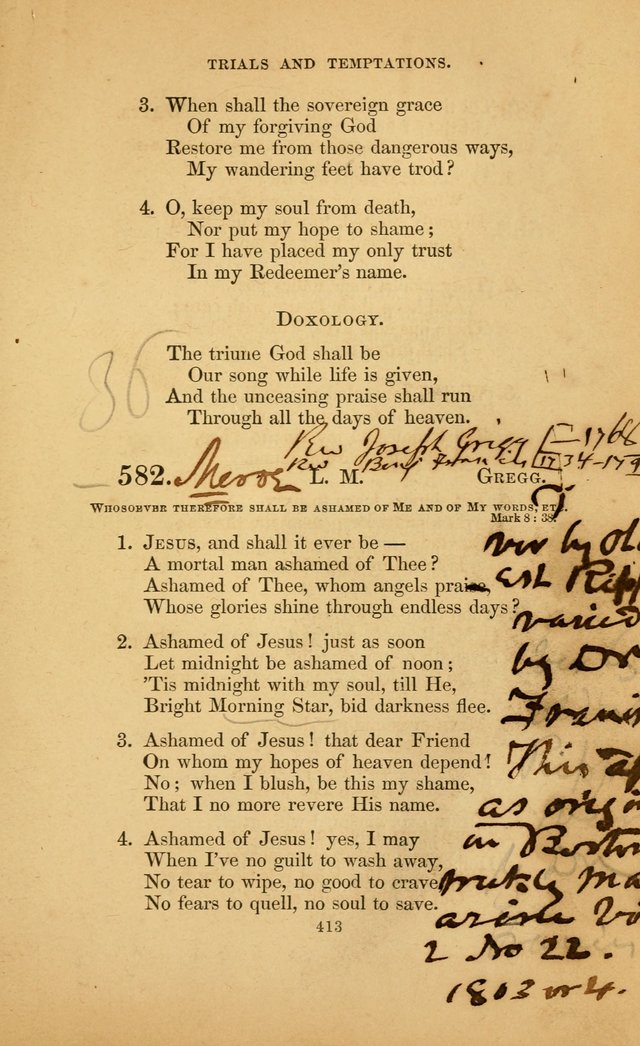 TRIALS AND TEMPTATIONS.
3. When shall the sovereign grace
Of my forgiving God
Restore me from those dangerous ways,
My wandering feet have trod?
4. O, keep my soul from death,
Nor put my hope to shame;
For I have placed my only trust
In my Redeemer's name.
DOXOLOGY.
36
The triune God shall be
Our song while life is given,
And the unceasing praise shall run
Through all the days of heaven.
Rev Joseph Gregg 1768
Rev Benj Francis 1734-179
582. Meroe L. M. GREGG.
WHOSOEVER THEREFORE SHALL BE ASHAMED OF ME AND OF MY WORDS, ETC.
Mark 8 : 38.
1. JESUS, and shall it ever be —
A mortal man ashamed of Thee?
Ashamed of Thee, whom angels praise,
Whose glories shine through endless days?
2. Ashamed of Jesus! just as soon
Let midnight be ashamed of noon;
'Tis midnight with my soul, till He,
Bright Morning Star, bid darkness flee.
3. Ashamed of Jesus! that dear Friend
On whom my hopes of heaven depend!
No; when I blush, be this my shame,
That I no more revere His name.
4. Ashamed of Jesus! yes, I may
When I've no guilt to wash away,
No tear to wipe, no good to crave,
No fears to quell, no soul to save.
413
by
varied
by Dr
This
as orig
in Boston
2 No 22.
1803 or 4.